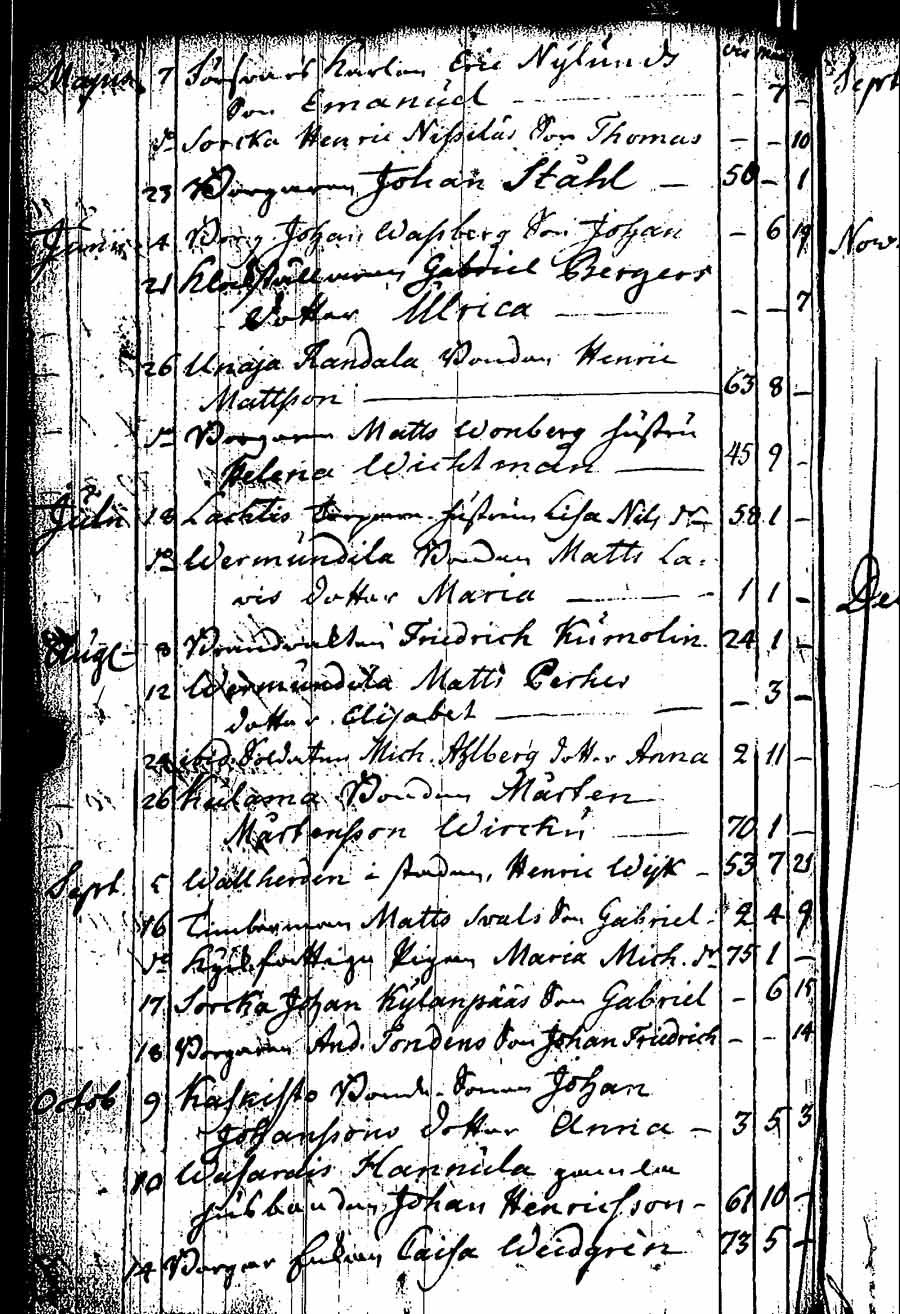 Majus 7 Karlen Eric Nÿlunds
Son Emanüel - 7 -
do Sorcka Henric Nissiläs Son Thomas - - 10
23 Borgaren Johan Ståhl - 50 - 1
Junii 4 Borg Johan Wassberg Son Johan - 6 19
21 Gabriel Bergers
dotter Ulrica - - 7
26 Unaja Randala Bonden Henric
Mattsson 63 8 -
do Borgaren Matts Wonberg hustru
Helena Wichtman 45 9 -
Julii 18 Lachtis hustrun Lisa Nils dr 58 1 -
do Wermundila Bonden Matts La-
vis dotter Maria - 1 1 -
Aug 8 Friedrich Kumolin 24 1 -
12 Wermundila Matts Perkes
dotter Elisabet - 3 -
24 ibid. Soldaten Mich. Ahlberg dotter Anna 2 11 -
26 Kulama Bonden Mårten
Mårtensson Wirckü 70 1 -
Sept. 5 Wallherden i staden, Henric Wijk - 53 7 21
16 Timberman Matts Svals Son Gabriel - 2 4 9
do fattige Pigan Maria Mich. dr 75 1 -
17 Sorcka Johan Kÿlänpääs Son Gabriel - 6 15
18 Borgaren And. Tondens Son Johan Friedrich - - 14
Octob 9 Kaskisto Bonde-Sonen Johan
Johanssons dotter Anna - 3 5 3
10 Wasarais Hannula gamle
husbonden Johan Henricsson - 61 10 -
14 Borgar Enkan Caisa Weidgren 73 5 -
Sept
Nov.
Dec